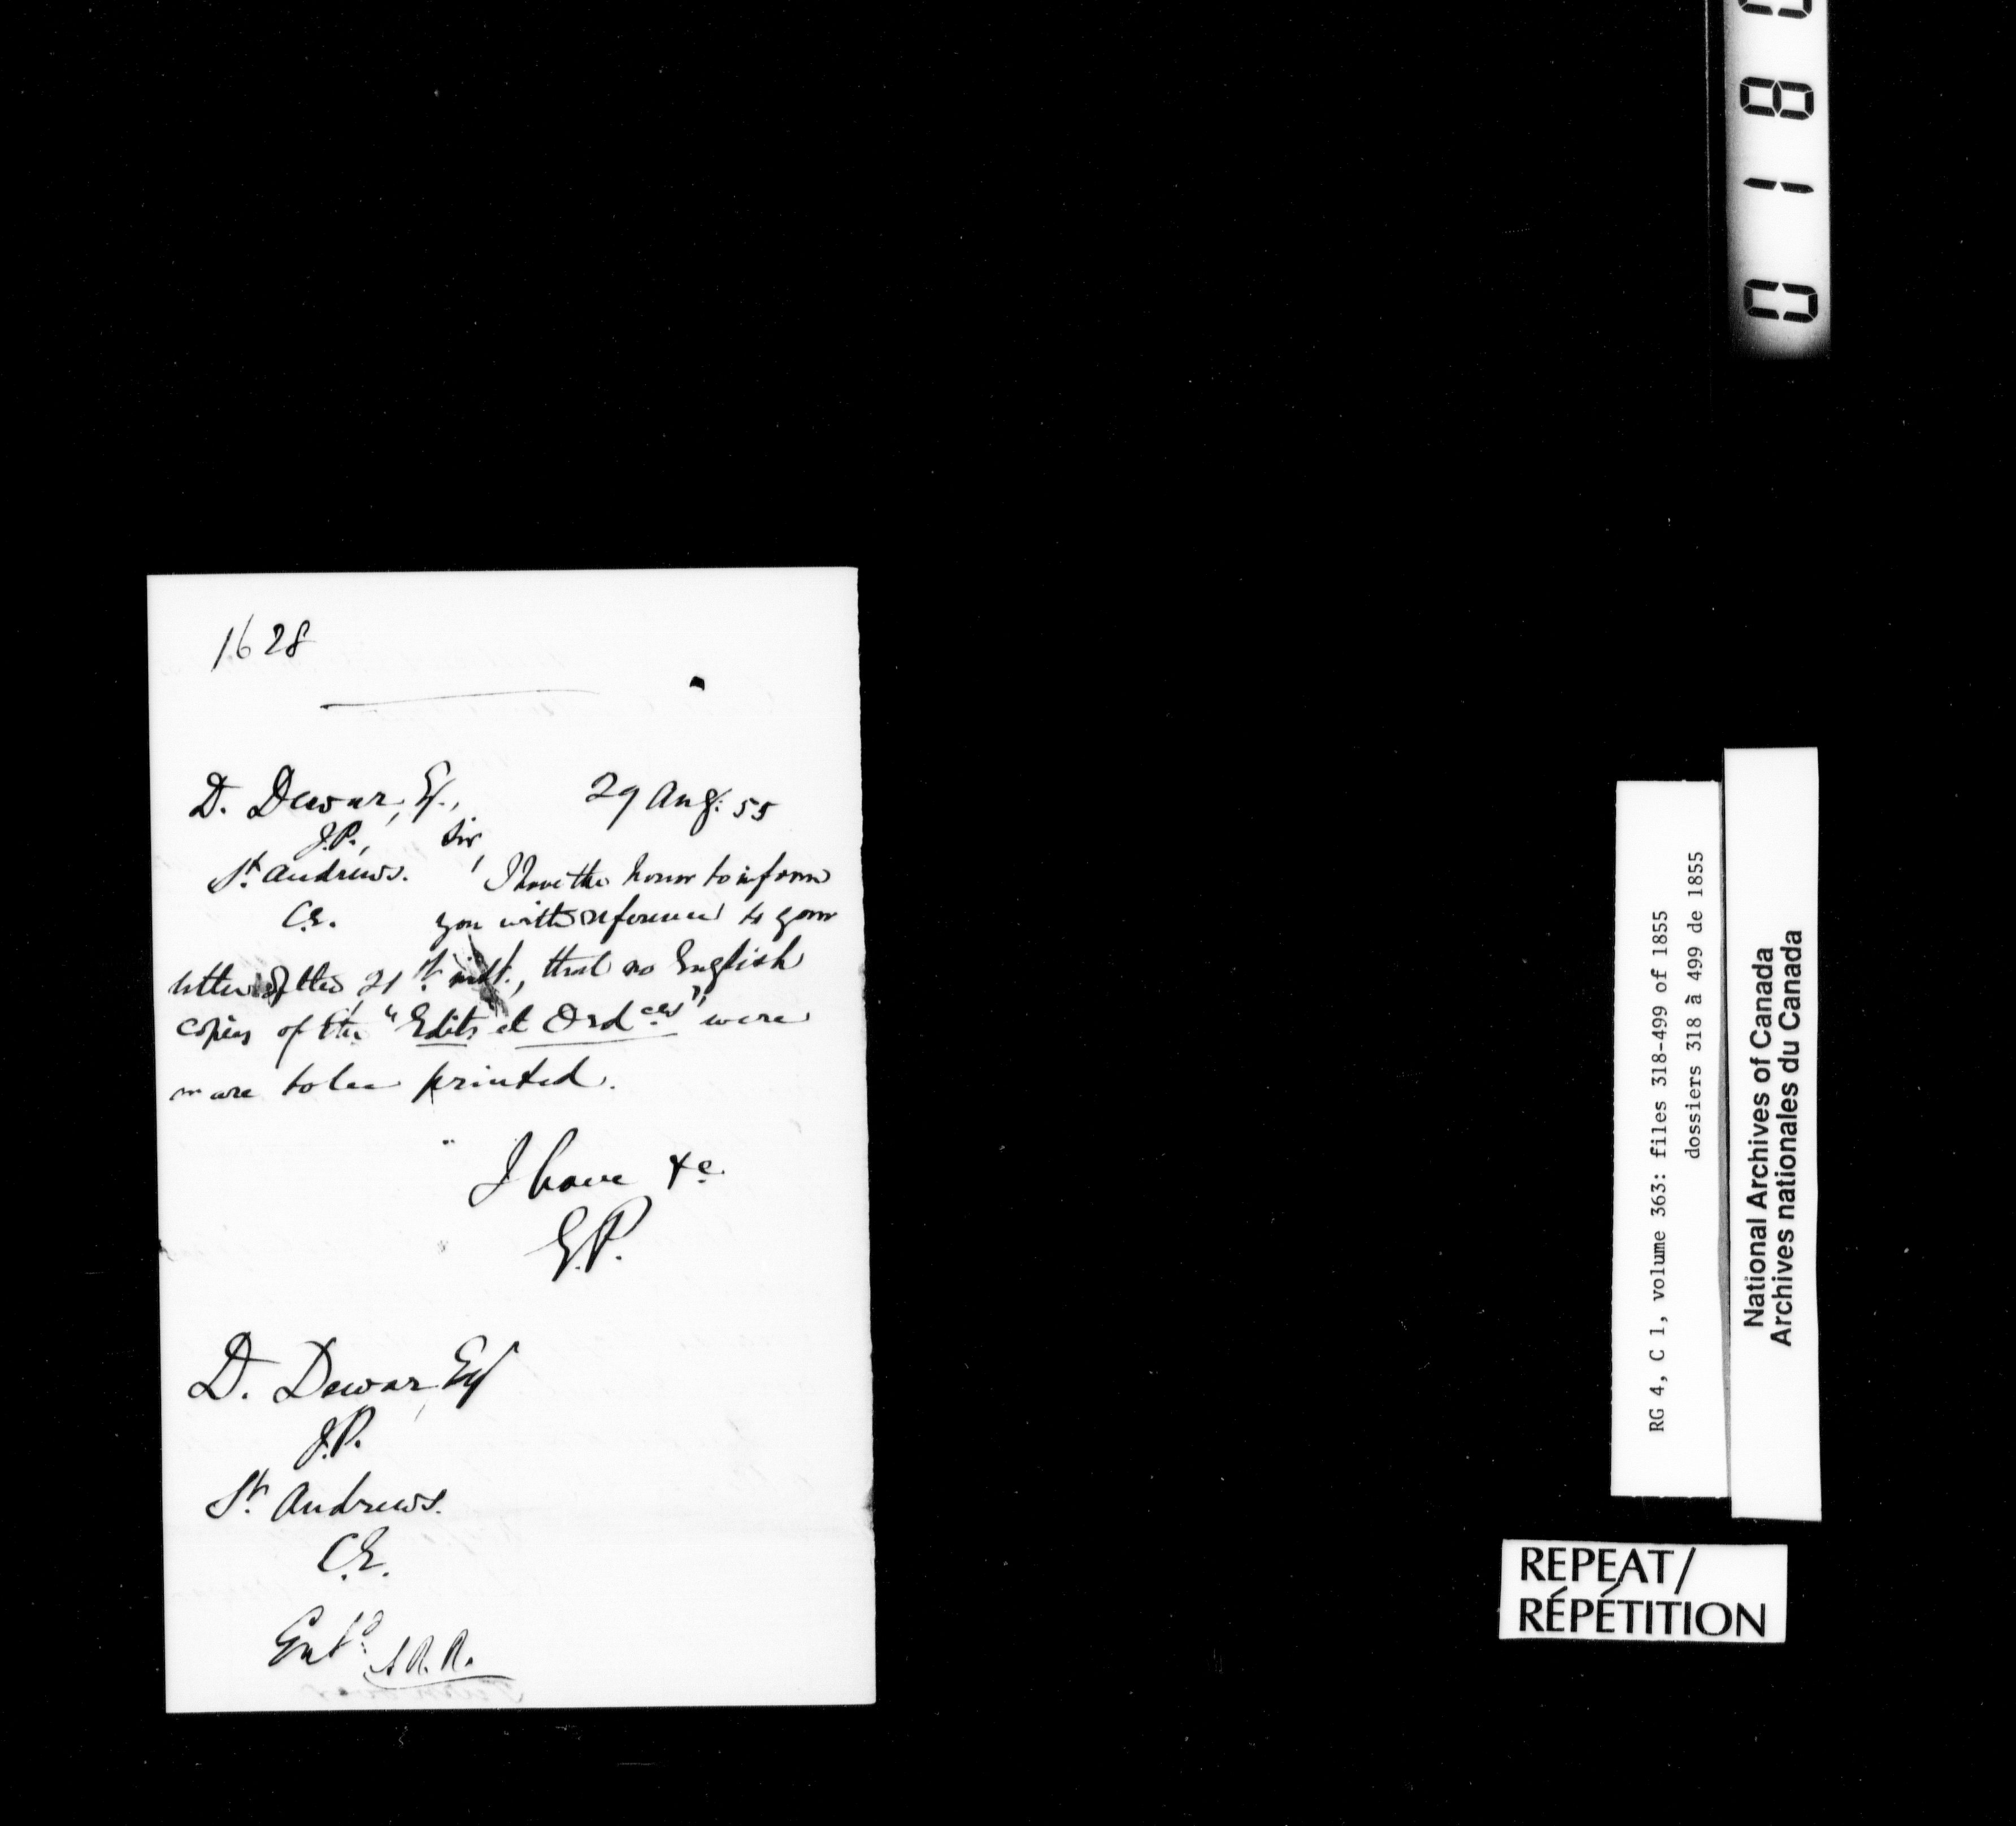 1628
D. Dewar, Esq., 29 Aug: 55
J.P., Sir,
St. Andrews. I have the honor to inform
C.E. you with reference to your
letter of the 21st inst., that no English
copies of the "Edits et Ordces" were
or are to be printed.
I have &c
E.P.
D. Dewar, Esq
J.P.
St. Andrews.
C.E.
Entd. A.R.R.
0 1 8
RG 4, C 1, volume 363: files 318-499 of 1855
dossiers 318 à 499 de 1855
National Archives of Canada
Archives nationales du Canada
REPEAT/
RÉPÉTITION